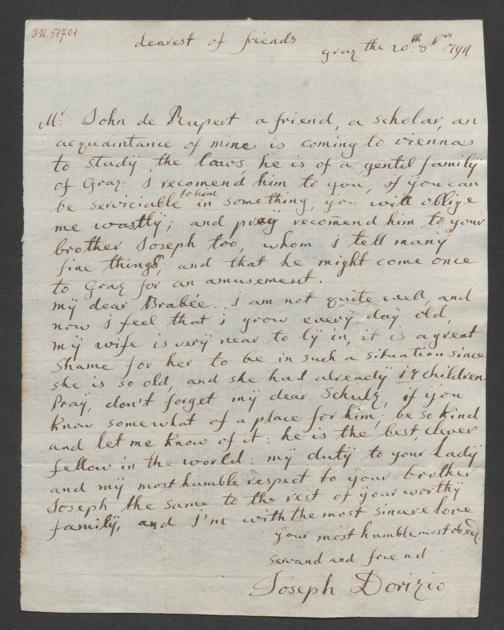 I.N. 51701
dearest of friends
graz the 20th 8bris 794
Mr John de Rupert a friend, a scholar, an
acquaintance of mine is coming to vienna
to study the laws, he is of a gentil family
of Graz. i recomend him to you, if you can
be serviciable to him in something, you will oblige
me wastly; and pray recomend him to your
brother Joseph too, whom i tell many
fine things, and that he might come once
to Graz for an amusement.
my dear Brabée. i am not quite well, and
now i feel that i grow every day old,
my wife is very near to ly in, it is a great
shame for her to be in such a situation since
she is so old, and she had already 18 children.
Pray, don't forget my dear Schulz, if you
know somewhat of a place for him, be so kind
and let me know of it: he is the best, clever
fellow in the world. my duty to your Lady
and my most humble respect to your brother
Joseph the same to the rest of your worthy
family, and I'm with the most sincere love
your most humble most obed.
servand and friend
Joseph Dorizio